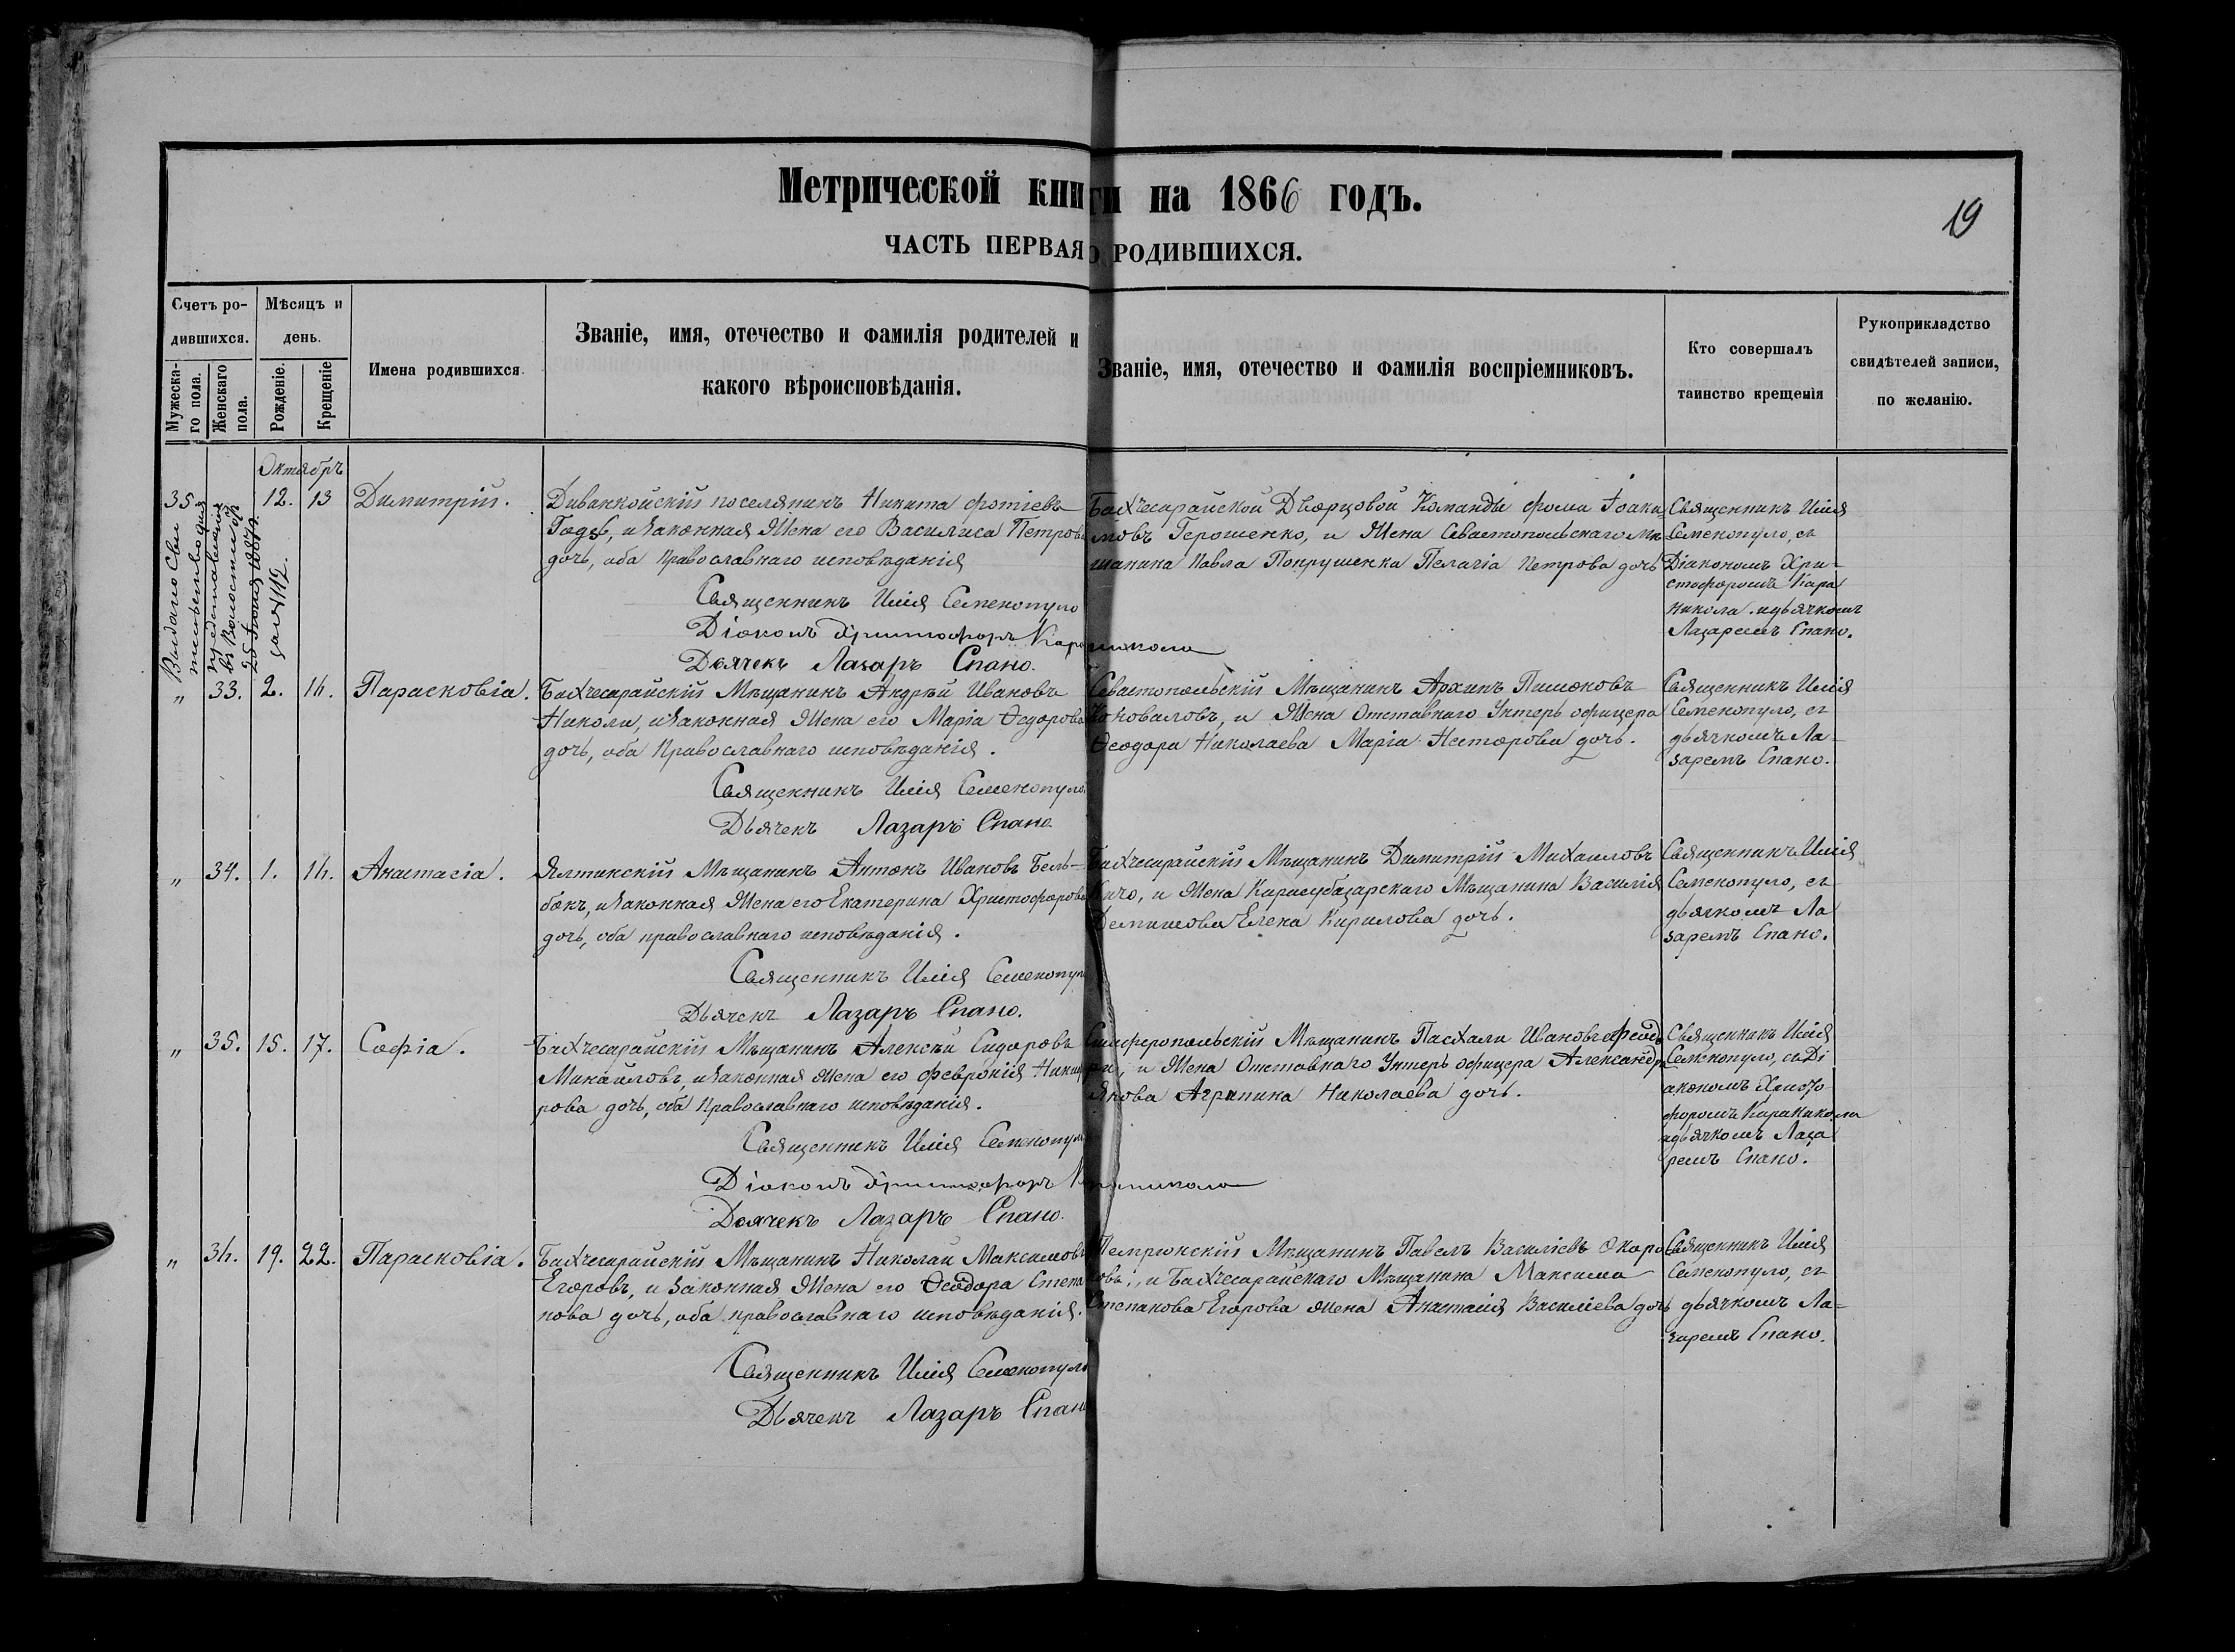 Метрической книги на 1866 годъ.
19
ЧАСТЬ ПЕРВАЯ О РОДИВШИХСЯ.
Счетъ ро-
дившихся.
Мужеска-
го пола.
Женскаго
пола.
Мѣсяцъ и
день.
Рожденіе.
Крещеніе
Имена родившихся.
Званіе, имя, отечество и фамилія родителей и
какого вѣроисповѣданія.
Званіе, имя, отечество и фамилія воспріемниковъ.
Кто совершалъ
таинство крещенія
Рукоприкладство
свидѣтелей записи,
по желанію.
Октябрь
35
12. 13
Димитрій.
Дивankойскій поселянинъ Никита Фотіевъ
Годзь, и законная жена его Василиса Петрова
дочь, оба православнаго исповѣданія
Священникъ Илія Семенопуло
Діаконъ Христофоръ Караникола
Дьячекъ Лазарь Спано.
Бахчесарайской Дворцовой Команды Фома Іоаки-
мовъ Герошенко, и жена Севастопольскаго мѣ-
щанина Павла Пелагія Петрова дочь
Священникъ Илія
Семенопуло, съ
Діакономъ Хри-
стофоромъ Кара
никола и дьячкомъ
Лазаремъ Спано.
Выдано сви
въ Волостное пр
25 1884
за №112.
„ 33. 2. 16.
Парасковіа.
Бахчесарайскій Мѣщанинъ Андрей Ивановъ
Николи, и законная жена его Марія Ѳедорова
дочь, оба Православнаго исповѣданія.
Священникъ Илія Семенопуло.
Дьячекъ Лазарь Спано
Севастопольскій Мѣщанинъ Архипъ Пимоновъ
Коноваловъ, и жена отставнаго Унтеръ офицера
Ѳеодора Николаева Марія Несторова дочь.
Священникъ Илія
Семенопуло, съ
дьячкомъ Ла-
заремъ Спано.
„ 34. 1. 16.
Анастасіа.
Ялтинскій Мѣщанинъ Антонъ Ивановъ Бель-
бекъ, и законная жена его Екатерина Христофорова
дочь, оба православнаго исповѣданія.
Священникъ Илія Семенопуло
Дьячекъ Лазарь Спано.
Бахчесарайскій Мѣщанинъ Димитрій Михаиловъ
Кичо, и жена Карасубазарскаго Мѣщанина Василія
Елена Кирилова дочь.
Священникъ Илія
Семенопуло, съ
дьячкомъ Ла
заремъ Спано.
„ 35. 15. 17.
Софіа.
Бахчесарайскій Мѣщанинъ Алексѣй Сидоровъ
Михайловъ, и законная жена его Февронія
рова дочь, оба Православнаго исповѣданія.
Священникъ Илія Семенопуло
Діаконъ Христофоръ Караникола
Дьячекъ Лазарь Спано.
Симферопольскій Мѣщанинъ Пасхали Ивановъ
и жена Отставнаго Унтеръ офицера Александра
Янова Агрипина Николаева дочь.
Священникъ Илія
Семенопуло, съ Ді
акономъ Христо
форомъ Караникола
и дьячкомъ Лаза
ремъ Спано.
„ 36. 19. 22.
Парасковіа.
Бахчесарайскій Мѣщанинъ Николай Максимовъ
Егоровъ, и законная жена его Ѳеодора Степа
нова дочь, оба православнаго исповѣданія.
Священникъ Илія Семенопуло
Дьячекъ Лазарь Спано
Темрюкскій Мѣщанинъ Павелъ Василіевъ Окоро-
ковъ, и Бахчесарайскаго Мѣщанина Максима
Степанова Егорова жена Анастасія Василіева дочь
Священникъ Илія
Семенопуло, съ
дьячкомъ Ла-
заремъ Спано.